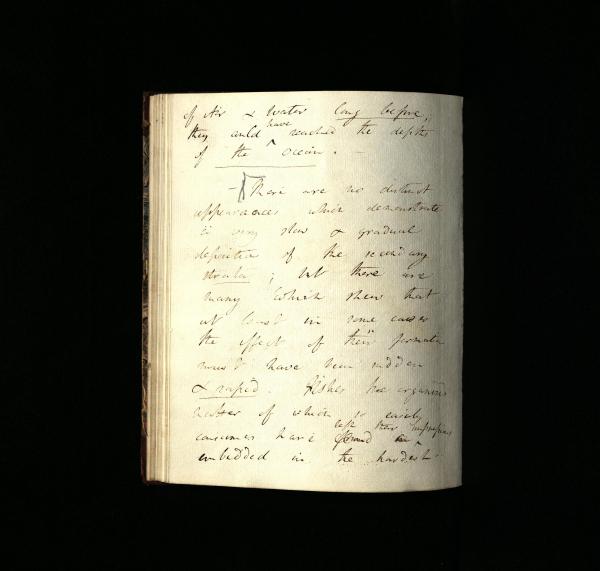 of Air & water long before,
they could have reached the depths
of the ocean. —
— There are no distinct
appearances which demonstrate
a very slow & gradual
deposition of the secondary
strata; but there are
many which shew that
at least in some cases
the effect of their formation
must have been sudden
& rapid. Fishes the organised
matter of which is easily
left their impressions
consumed have found in
embedded in the hardest